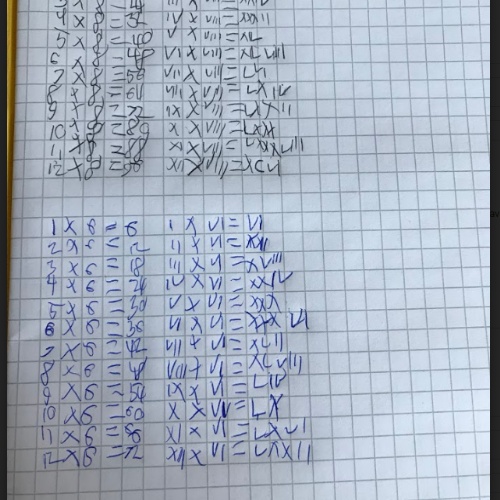 4 x 8 = 32 IV x VIII = XXXII
5 x 8 = 40 V x VIII = XL
6 x 8 = 48 VI x VIII = XLVIII
7 x 8 = 56 VII x VIII = LVI
8 x 8 = 64 VIII x VIII = LXIV
9 x 8 = 72 IX x VIII = LXXII
10 x 8 = 80 X x VIII = LXXX
11 x 8 = 88 XI x VIII = LXXXVIII
12 x 8 = 96 XII x VIII = XCVI
1 x 6 = 6 I x VI = VI
2 x 6 = 12 II x VI = XII
3 x 6 = 18 III x VI = XVIII
4 x 6 = 24 IV x VI = XXIV
5 x 6 = 30 V x VI = XXX
6 x 6 = 36 VI x VI = XXXVI
7 x 6 = 42 VII x VI = XLII
8 x 6 = 48 VIII x VI = XLVIII
9 x 6 = 54 IX x VI = LIV
10 x 6 = 60 X x VI = LX
11 x 6 = 66 XI x VI = LXVI
12 x 6 = 72 XII x VI = LXXII